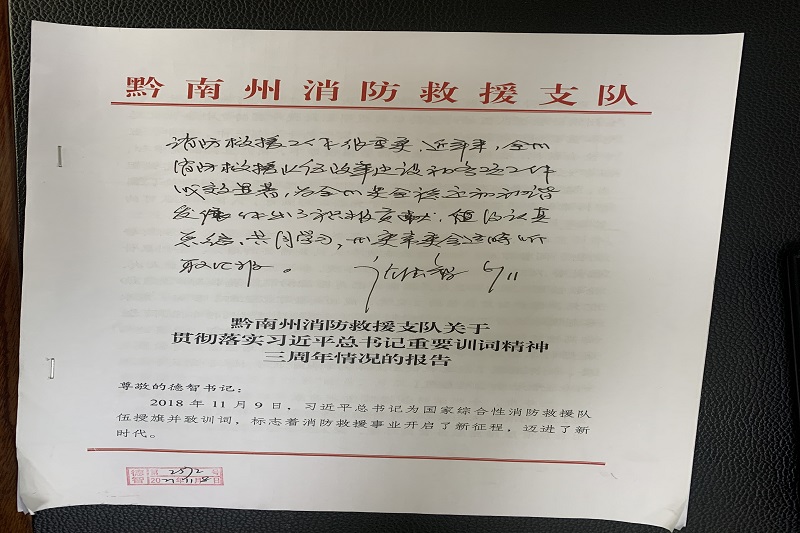 黔南州消防救援支队
消防救援工作很重要，近年来，全州
消防救援队伍改革建设和各项工作
成效显著，为全州安全稳定和和谐
发展作出了积极贡献，值得认真
总结、共同学习，州委常委会适时听
取汇报。
黔南州消防救援支队关于
贯彻落实习近平总书记重要训词精神
三周年情况的报告
尊敬的德智书记：
2018 年 11 月 9 日，习近平总书记为国家综合性消防救援队
伍授旗并致训词，标志着消防救援事业开启了新征程，迈进了新
时代。
2572